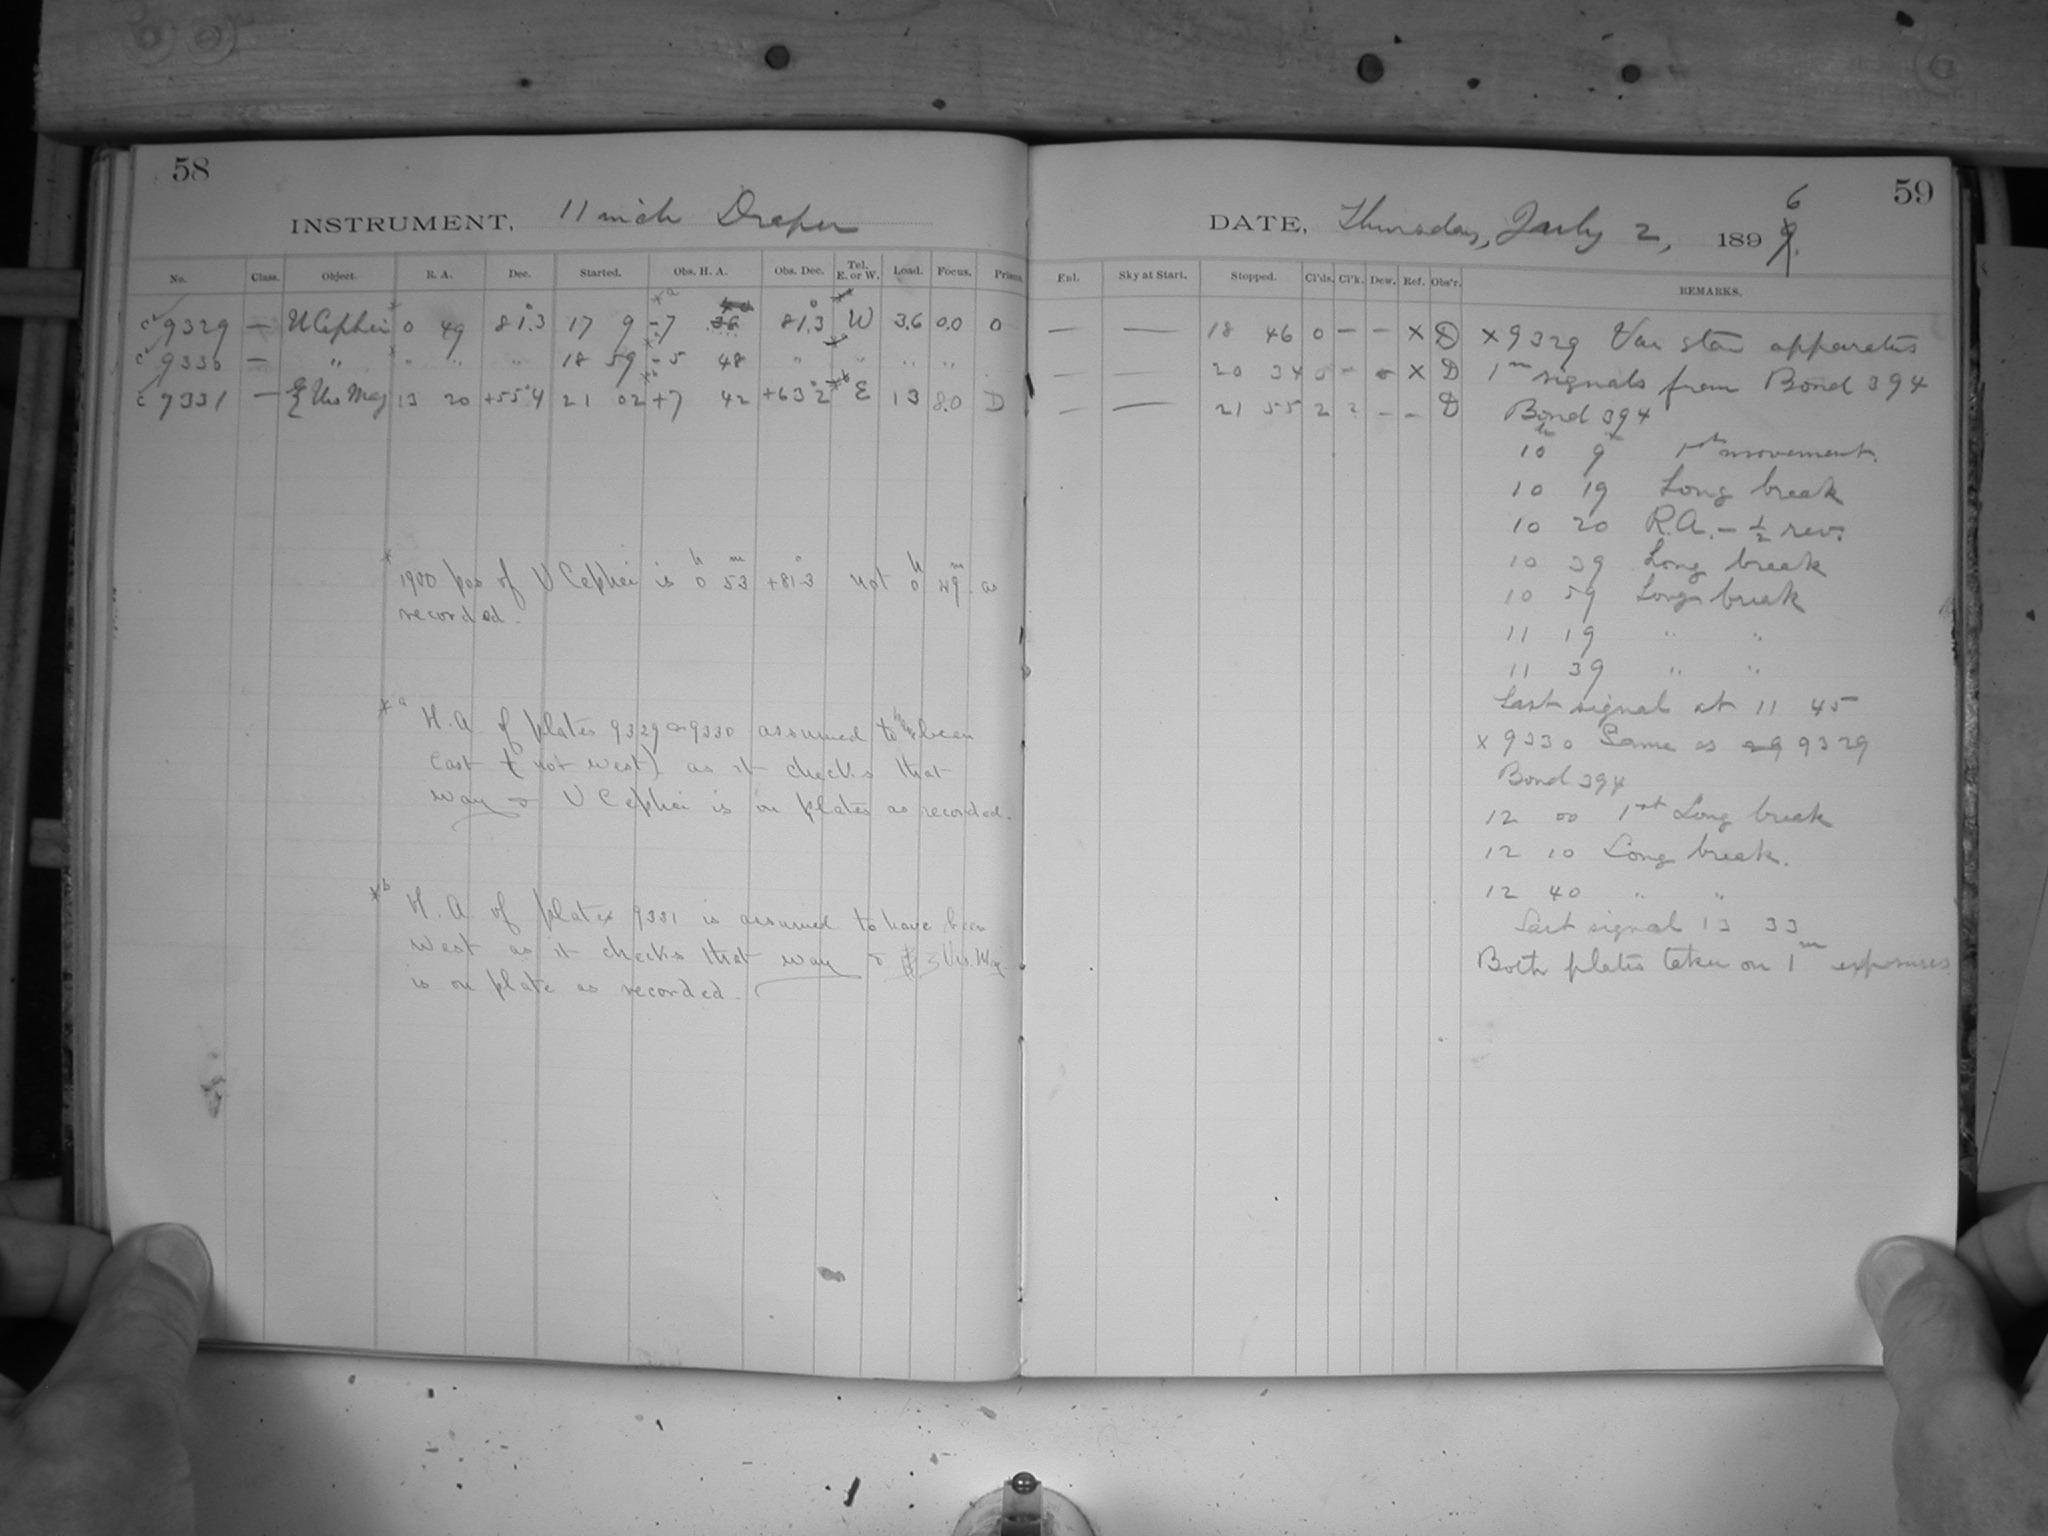 58
INSTRUMENT, 11 inch Draper
No. Class. Object. R. A. Dec. Started. Obs. H. A. Obs. Dec. Tel. E. or W. Load. Focus. Prism.
c 9329 — U Cephei * 0 49 81°.3 17 9 *a -7 36 81°.3 W 3.6 0.0 0
c 9330 — " " " " 18 59 -5 48 " " " "
c 9331 — ζ Urs Maj 13 20 +55°4 21 02 *b +7 42 +63°2 *b E 13 8.0 D
* 1900 pos of U Cephei is 0h 53m +81°.3 not 0h 49m as
recorded.
*a H.A of plates 9329 & 9330 assumed to have been
East (not west) as it checks that
way & U Cephei is on plates as recorded.
*b H.A. of plate 9331 is assumed to have been
west as it checks that way & ζ Urs. Maj.
is on plate as recorded.
59
DATE, Thursday, July 2, 1896
Enl. Sky at Start. Stopped. Cl'ds. Cl'k. Dew. Ref. Obs'r. REMARKS.
— — 18 46 0 — — X D X 9329 Var star apparatus
— — 20 34 0 — X D 1m signals from Bond 394
— — 21 55 2 2 — — D Bond 394
10h 9m 1st movement.
10 19 Long break
10 20 R.A. — ½ rev.
10 39 Long break
10 59 Long break
11 19 " "
11 39 " "
Last signal at 11 45
X 9330 Same as 9329
Bond 394
12 00 1st Long break
12 10 Long break.
12 40 " "
Last signal 13 33
Both plates taken on 1m exposures